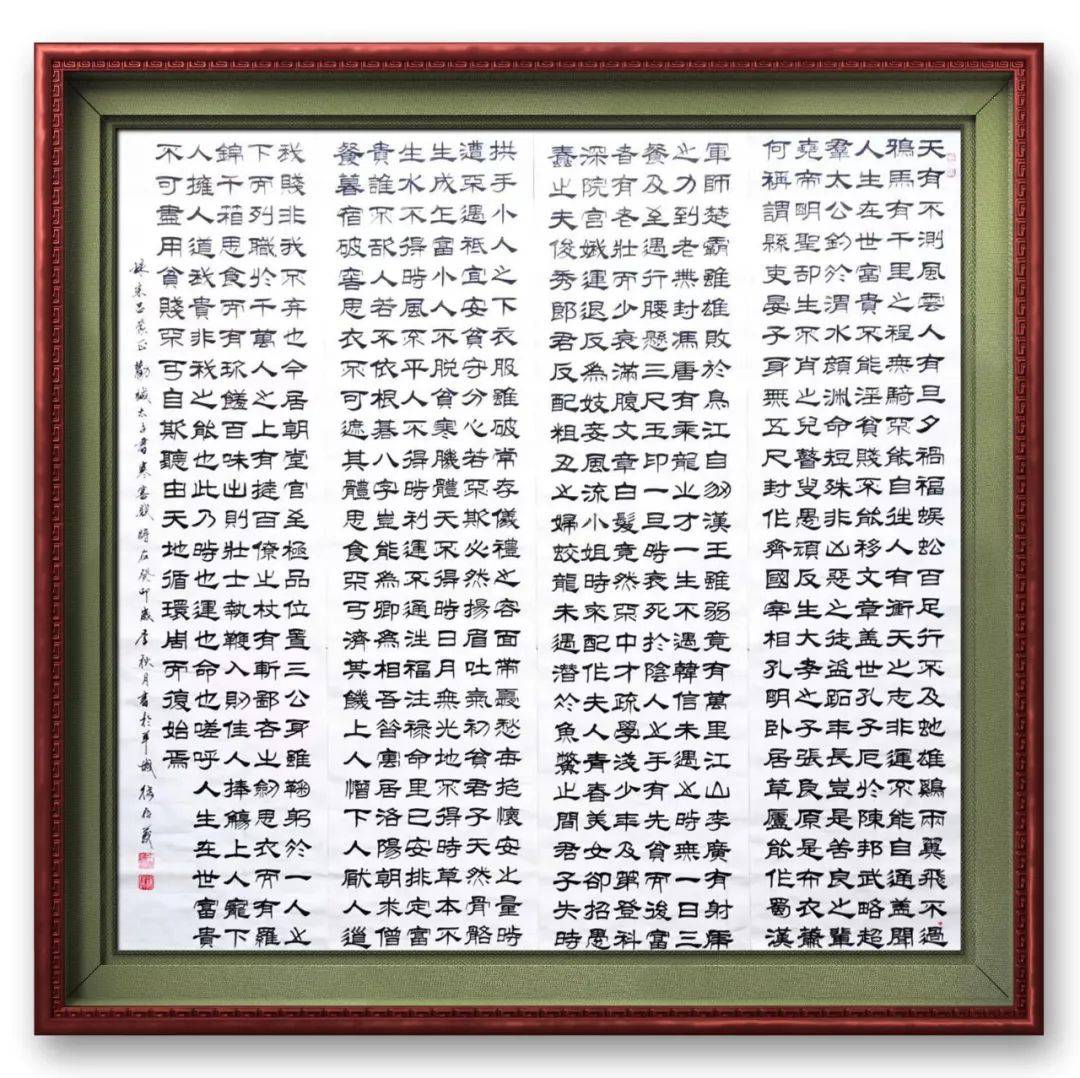 天有不測風雲人有旦夕禍福蜈蚣百足行不及蛇雄鷄兩翼飛不過
鴉馬有千里之程無騎不能自往人有衝天之志非運不能自通蓋聞
人生在世富貴不能淫貧賤不能移文章盖世孔子厄於陳邦武略超
羣太公釣於渭水顏淵命短殊非凶惡之徒盗跖年長豈是善良之輩
堯帝明聖卻生不肖之兒瞽叟愚頑反生大孝之子張良原是布衣蕭
何稱謂縣吏晏子身無五尺封作齊國宰相孔明卧居草廬能作蜀漢
軍師楚霸雖雄敗於烏江自刎漢王雖弱竟有萬里江山李廣有射虎
之力到老無封馮唐有乘龍之才一生不遇韓信未遇之時無一日三
餐及至遇行腰懸三尺玉印一旦時衰死於陰人之手有先貧而後富
者有老壯而少衰滿腹文章白髮竟然不中才疏學淺少年及第登科
深院宮娥運退反為妓妾風流小姐時來配作夫人青春美女卻招愚
蠢之夫俊秀郎君反配粗丑之婦蛟龍未遇潛於魚鱉之間君子失時
拱手小人之下衣服雖破常存儀禮之容面帶憂愁每抱懷安之量時
遭不遇祗宜安貧守分心若不斯必然揚眉吐氣初貧君子天然骨骼
生成乍富小人不脫貧寒肌體天不得時日月無光地不得時草木不
生水不得時風不平人不得時利運不通注福注禄命里已安排定富
貴誰不欲人若不依根基八字豈能為卿為相吾昔寓居洛陽朝求僧
餐暮宿破窑思衣不可遮其體思食不可濟其饑上人憎下人厭人道
我賤非我不弃也今居朝堂官至極品位置三公身雖鞠躬於一人之
下而列職於千萬人之上有撻百僚之杖有斬鄙吝之劍思衣而有羅
錦千箱思食而有珍饈百味出則壯士執鞭入則佳人捧觴上人寵下
人擁人道我貴非我之能也此乃時也運也命也嗟呼人生在世富貴
不可盡用貧賤不可自斯聽由天地循環周而復始焉
錄宋呂蒙正勸誡太子書寒窑賦時在癸卯歲季秋月書於